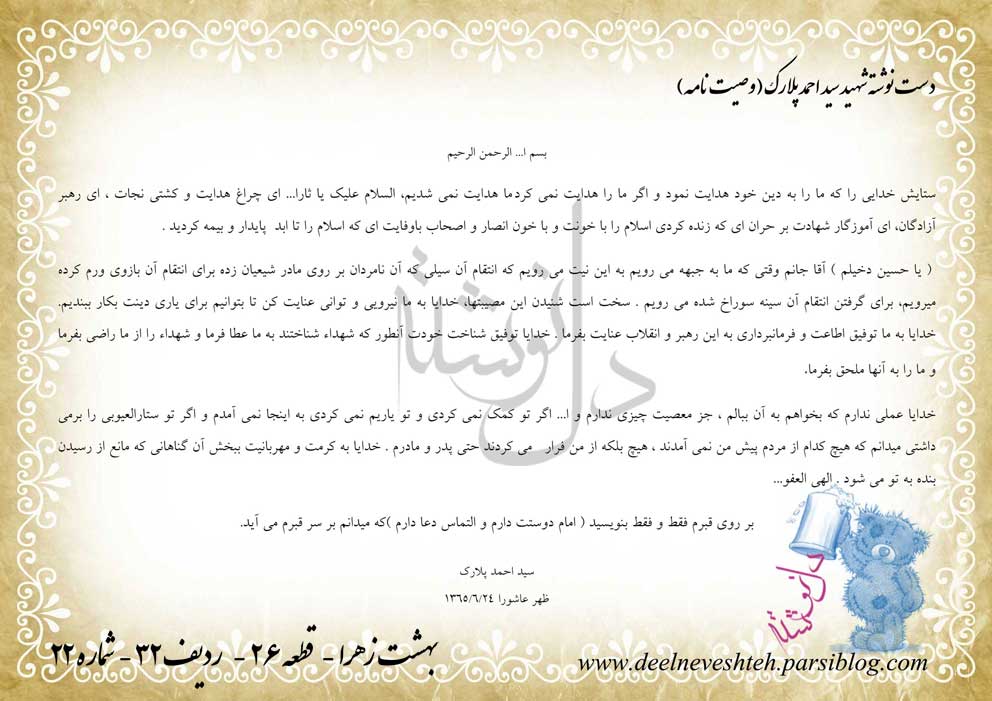 دست نوشته شهید سید احمد پلارک (وصیت نامه)
بسم ا... الرحمن الرحیم
ستایش خدایی را که ما را به دین خود هدایت نمود و اگر ما را هدایت نمی کرد ما هدایت نمی شدیم، السلام علیک یا ثارا... ای چراغ هدایت و کشتی نجات ، ای رهبر
آزادگان، ای آموزگار شهادت بر حران ای که زنده کردی اسلام را با خونت و با خون انصار و اصحاب باوفایت ای که اسلام را تا ابد پایدار و بیمه کردید .
( یا حسین دخیلم ) آقا جانم وقتی که ما به جبهه می رویم به این نیت می رویم که انتقام آن سیلی که آن نامردان بر روی مادر شیعیان زده برای انتقام آن بازوی ورم کرده
میرویم، برای گرفتن انتقام آن سینه سوراخ شده می رویم . سخت است شنیدن این مصیبتها، خدایا به ما نیرویی و توانی عنایت کن تا بتوانیم برای یاری دینت بکار ببندیم.
خدایا به ما توفیق اطاعت و فرمانبرداری به این رهبر و انقلاب عنایت بفرما . خدایا توفیق شناخت خودت آنطور که شهداء شناختند به ما عطا فرما و شهداء را از ما راضی بفرما
و ما را به آنها ملحق بفرما.
خدایا عملی ندارم که بخواهم به آن ببالم ، جز معصیت چیزی ندارم و ا... اگر تو کمک نمی کردی و تو یاریم نمی کردی به اینجا نمی آمدم و اگر تو ستارالعیوبی را برمی
داشتی میدانم که هیچ کدام از مردم پیش من نمی آمدند ، هیچ بلکه از من فرار می کردند حتی پدر و مادرم . خدایا به کرمت و مهربانیت ببخش آن گناهانی که مانع از رسیدن
بنده به تو می شود . الهی العفو...
بر روی قبرم فقط و فقط بنویسید ( امام دوستت دارم و التماس دعا دارم )که میدانم بر سر قبرم می آید.
سید احمد پلارک
ظهر عاشورا ۱۳۶۵/۶/۲۴
دل نوشته
دل نوشته
بهشت زهرا - قطعه ۲۶ - ردیف ۳۲ - شماره ۲۲
www.deelneveshteh.parsiblog.com